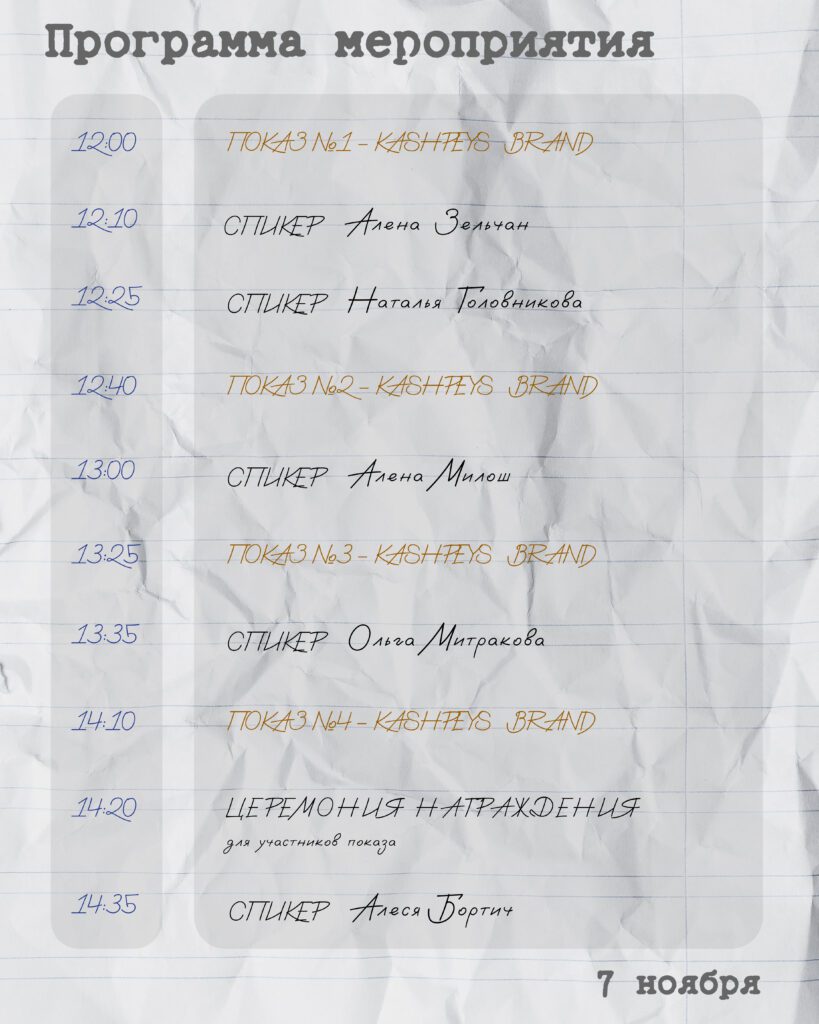 Программа мероприятия
12:00 ПОКАЗ №1 - KASHPEYS BRAND
12:10 СПИКЕР Алена Зельчан
12:25 СПИКЕР Наталья Головникова
12:40 ПОКАЗ №2 - KASHPEYS BRAND
13:00 СПИКЕР Алена Милош
13:25 ПОКАЗ №3 - KASHPEYS BRAND
13:35 СПИКЕР Ольга Митракова
14:10 ПОКАЗ №4 - KASHPEYS BRAND
14:20 ЦЕРЕМОНИЯ НАГРАЖДЕНИЯ
для участников показа
14:35 СПИКЕР Алеся Бортич
7 ноября